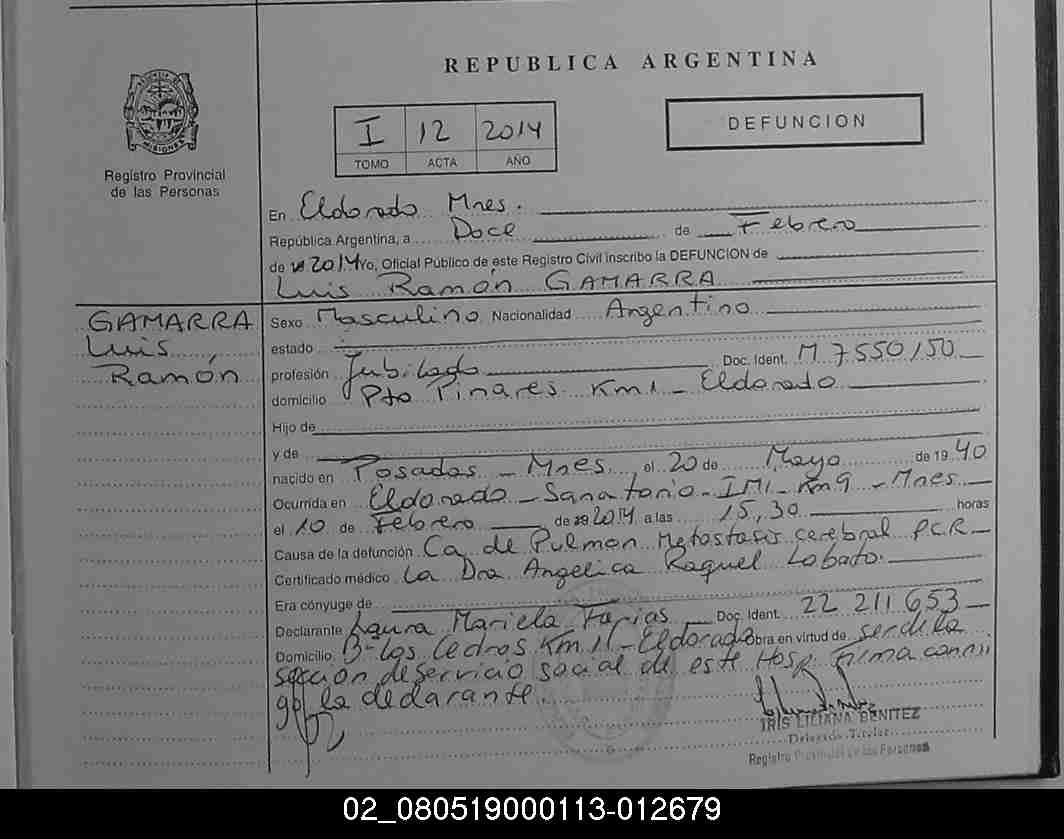 REPUBLICA ARGENTINA
PROVINCIA DE
MISIONES
Registro Provincial
de las Personas
I 12 2014
TOMO ACTA AÑO
DEFUNCION
En Eldorado Mnes.
República Argentina, a Doce de Febrero
de 2014 Yo, Oficial Público de este Registro Civil inscribo la DEFUNCION de
Luis Ramón GAMARRA
GAMARRA
Luis
Ramón
Sexo Masculino Nacionalidad Argentino
estado
profesión Jubilado Doc. Ident. M 7550150
domicilio Pto Pinares Km 1 - Eldorado
Hijo de
y de
nacido en Posadas - Mnes el 20 de Mayo de 1940
Ocurrida en Eldorado - Sanatorio - IMI - Km 9 - Mnes
el 10 de Febrero de 2014 a las 15,30 horas
Causa de la defunción Ca de Pulmon Metastasis cerebral PCR
Certificado médico La Dra Angelica Raquel Lobato.
Era cónyuge de
Declarante Laura Mariela Farias Doc. Ident. 22 211 653
Domicilio B- Los Cedros Km 11 - Eldorado Obra en virtud de ser de la
sección de servicio social de este Hosp. Firma conmi
go la declarante.
IRIS LILIANA BENITEZ
Delegada Titular
Registro Provincial de las Personas
02_080519000113-012679